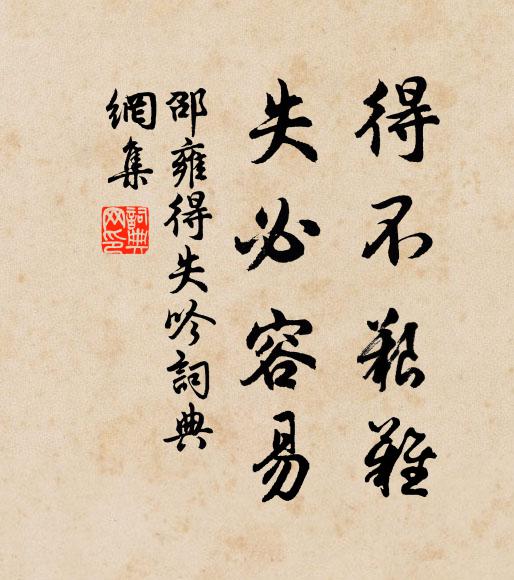 得不艱難
失必容易
邵雍得失吟詞典
網集
詞典
网印